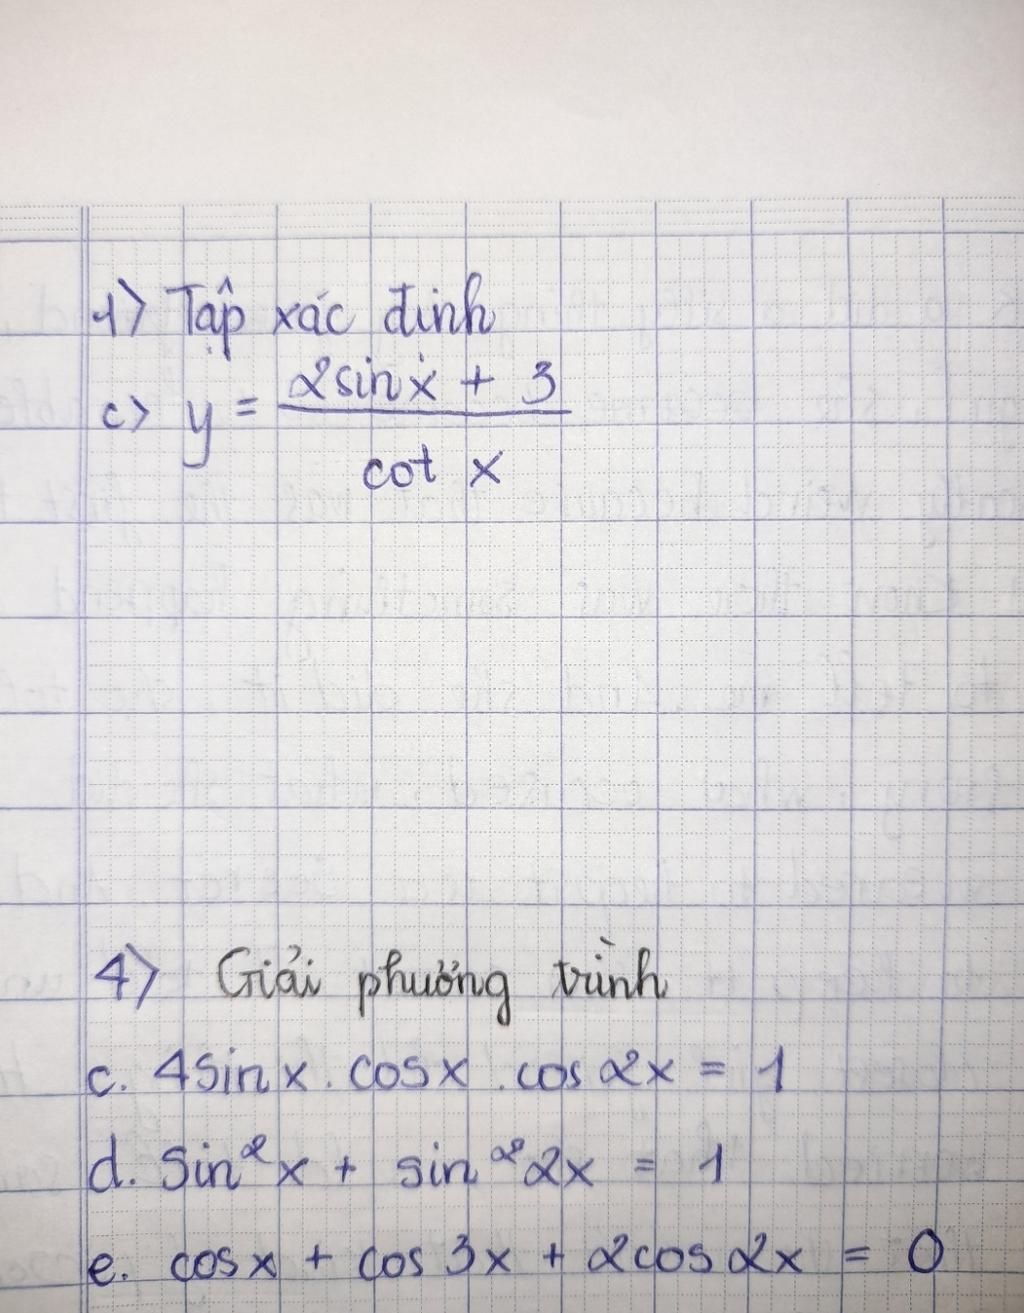 1) Tập xác định
c) y = (2sin x + 3) / (cot x)
4) Giải phương trình
c. 4sin x . cos x . cos 2x = 1
d. sin² x + sin² 2x = 1
e. cos x + cos 3x + 2cos 2x = 0